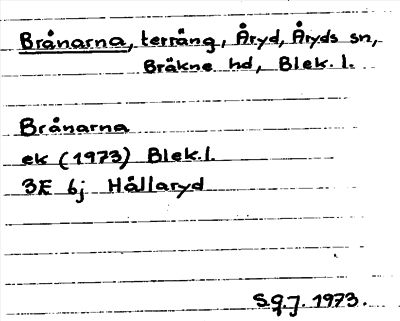 Brånarna, terräng, Åryd, Åryds sn,
Bräkne hd, Blek. l.
Brånarna
ek (1973) Blek. l.
3E 6j Hållaryd
S.G.J. 1973.